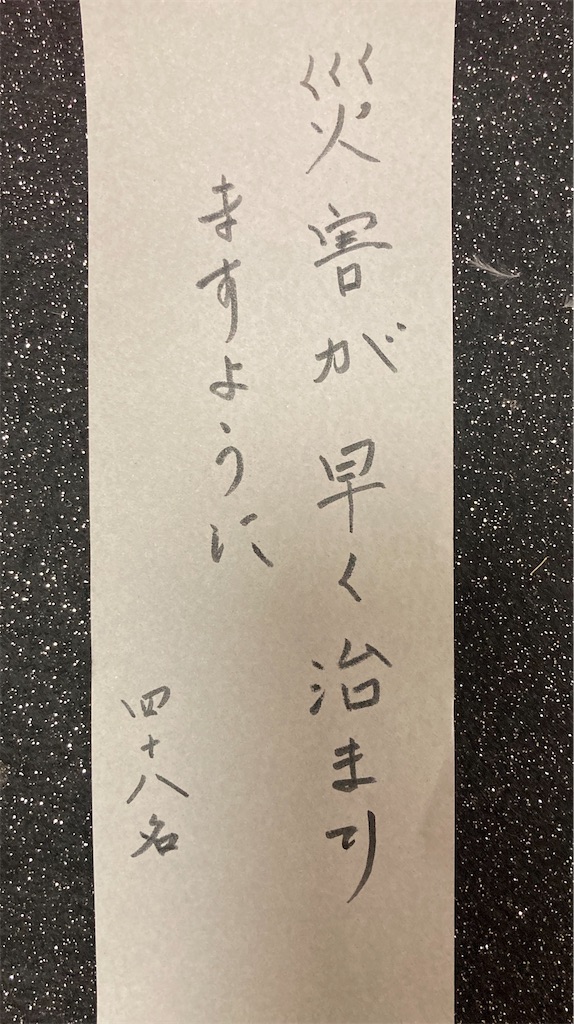 災害が早く治まり
ますように
四十八名